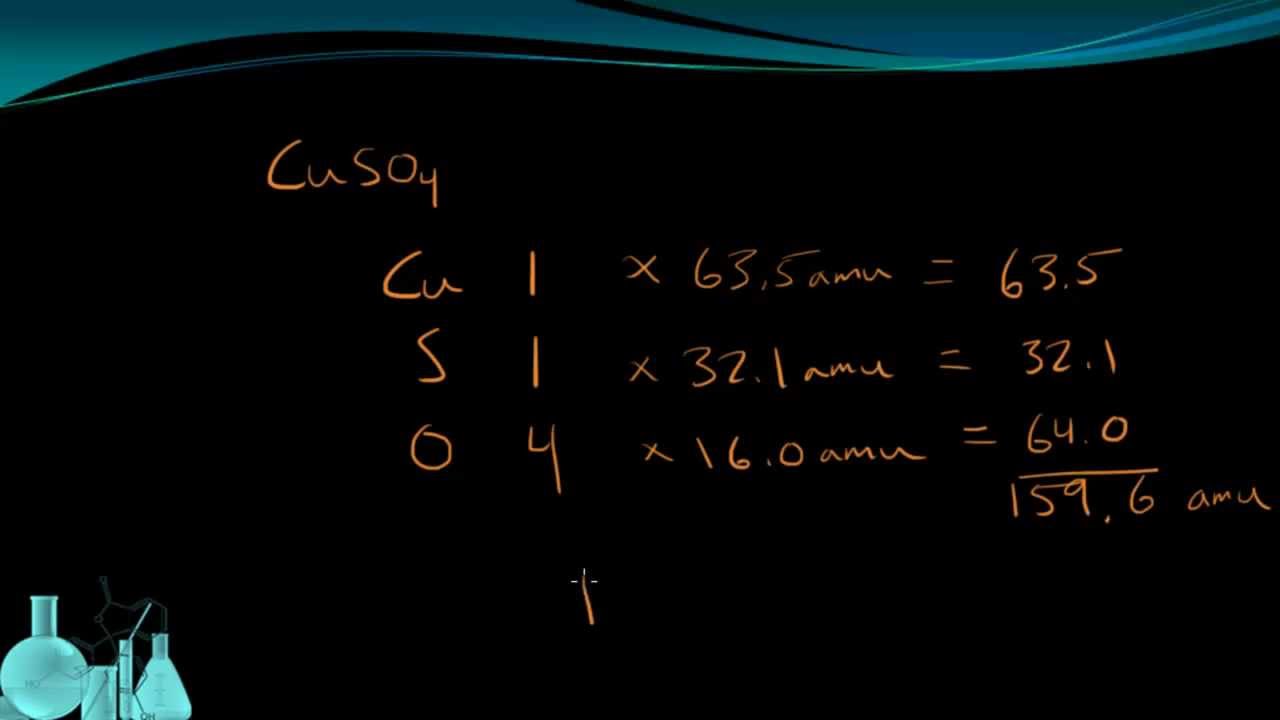 CuSO₄
Cu 1 × 63.5 amu = 63.5
S 1 × 32.1 amu = 32.1
O 4 × 16.0 amu = 64.0
159.6 amu
1
O
O
HO
OH